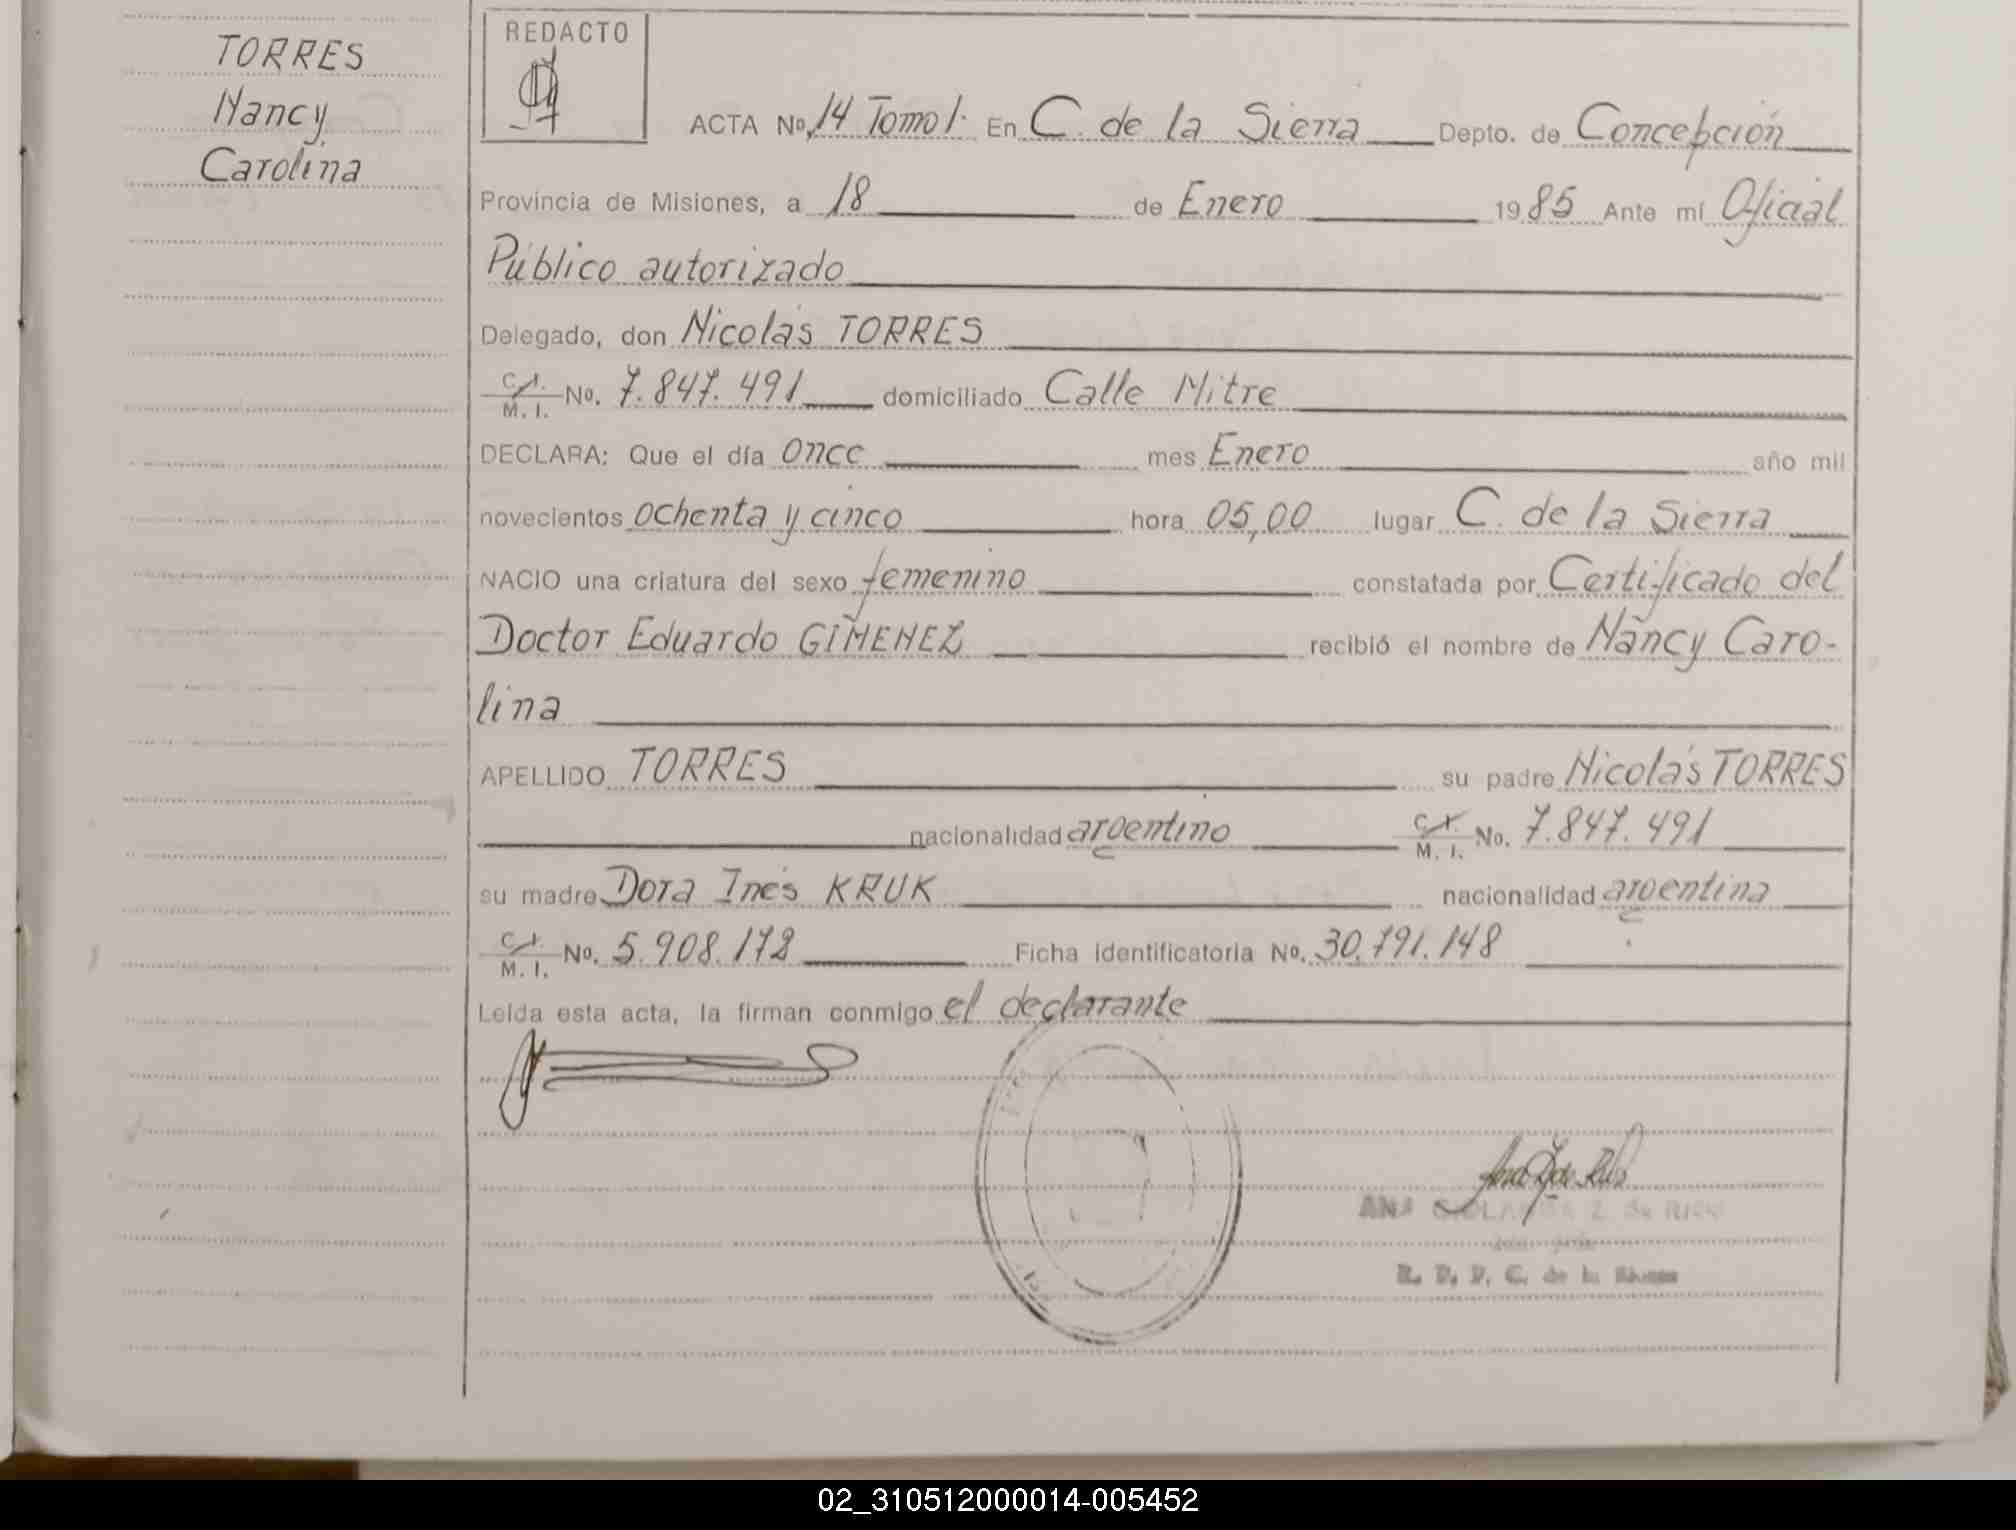 TORRES
Nancy
Carolina
REDACTO
ACTA Nº 14 Tomo 1. En C. de la Sierra Depto. de Concepción
Provincia de Misiones, a 18 de Enero 1985 Ante mí Oficial
Público autorizado
Delegado, don Nicolás TORRES
C. I. M. I. No. 7.847.491 domiciliado Calle Mitre
DECLARA: Que el día once mes Enero año mil
novecientos ochenta y cinco hora 05,00 lugar C. de la Sierra
NACIO una criatura del sexo femenino constatada por Certificado del
Doctor Eduardo GIMENEZ recibió el nombre de Nancy Caro-
lina
APELLIDO TORRES su padre Nicolás TORRES
nacionalidad argentino C. I. M. I. No. 7.847.491
su madre Dora Inés KRUK nacionalidad argentina
C. I. M. I. No. 5.908.172 Ficha identificatoria No. 30.791.148
Leída esta acta, la firman conmigo el declarante
de la Sierra
02_310512000014-005452